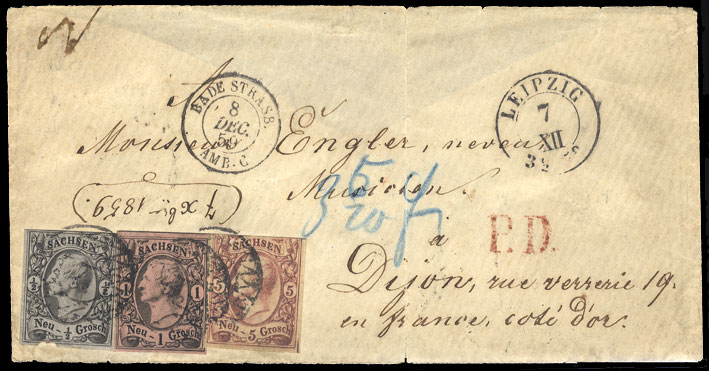 BADE STRASB.
8
DEC.
59
AMB. C
LEIPZIG
7
XII
A
Monsieur Engler, neveu
Musicien.
à
Dijon, rue verrerie 19.
en france, coté d'or.
7 xbr 1859.
P.D.
SACHSEN
½ ½
Neu-½-Grosch
SACHSEN
1 1
Neu-1-Grosch
SACHSEN
5 5
Neu-5-Grosch